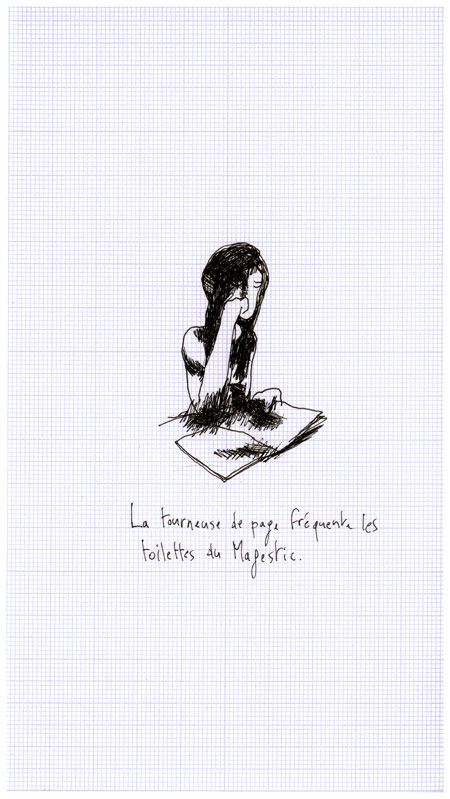 La tourneuse de page fréquente les
toilettes du Magestic.